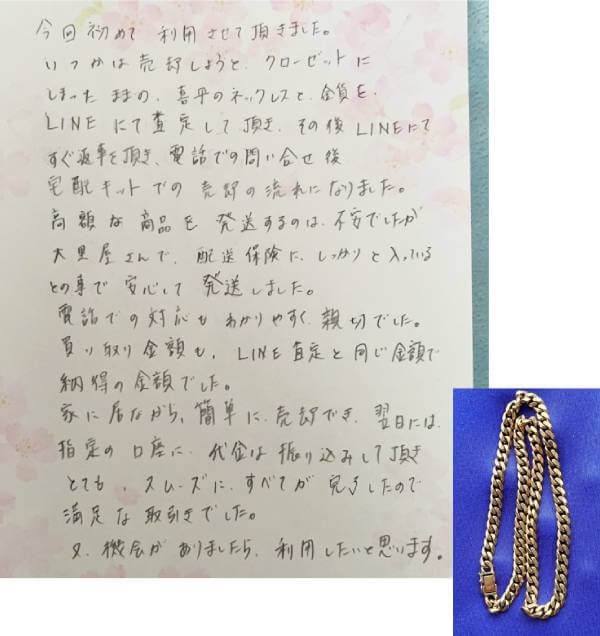 今回初めて 利用させて頂きました。
いつかは売却しようと、クローゼットに
しまったままの、喜平のネックレスと、金貨を、
LINEにて査定して頂き、その後LINEにて
すぐ返事を頂き、電話での問い合せ後
宅配キットでの売却の流れになりました。
高額な商品を発送するのは、不安でしたが
大黒屋さんで、配送保険に、しっかりと入っている
との事で安心して発送しました。
電話での対応もわかりやすく、親切でした。
買い取り金額も、LINE査定と同じ金額で
納得の金額でした。
家に居ながら、簡単に、売却でき、翌日には、
指定の口座に、代金は振り込みして頂き
とても、スムーズに、すべてが完了したので
満足な取引きでした。
又、機会がありましたら、利用したいと思います。